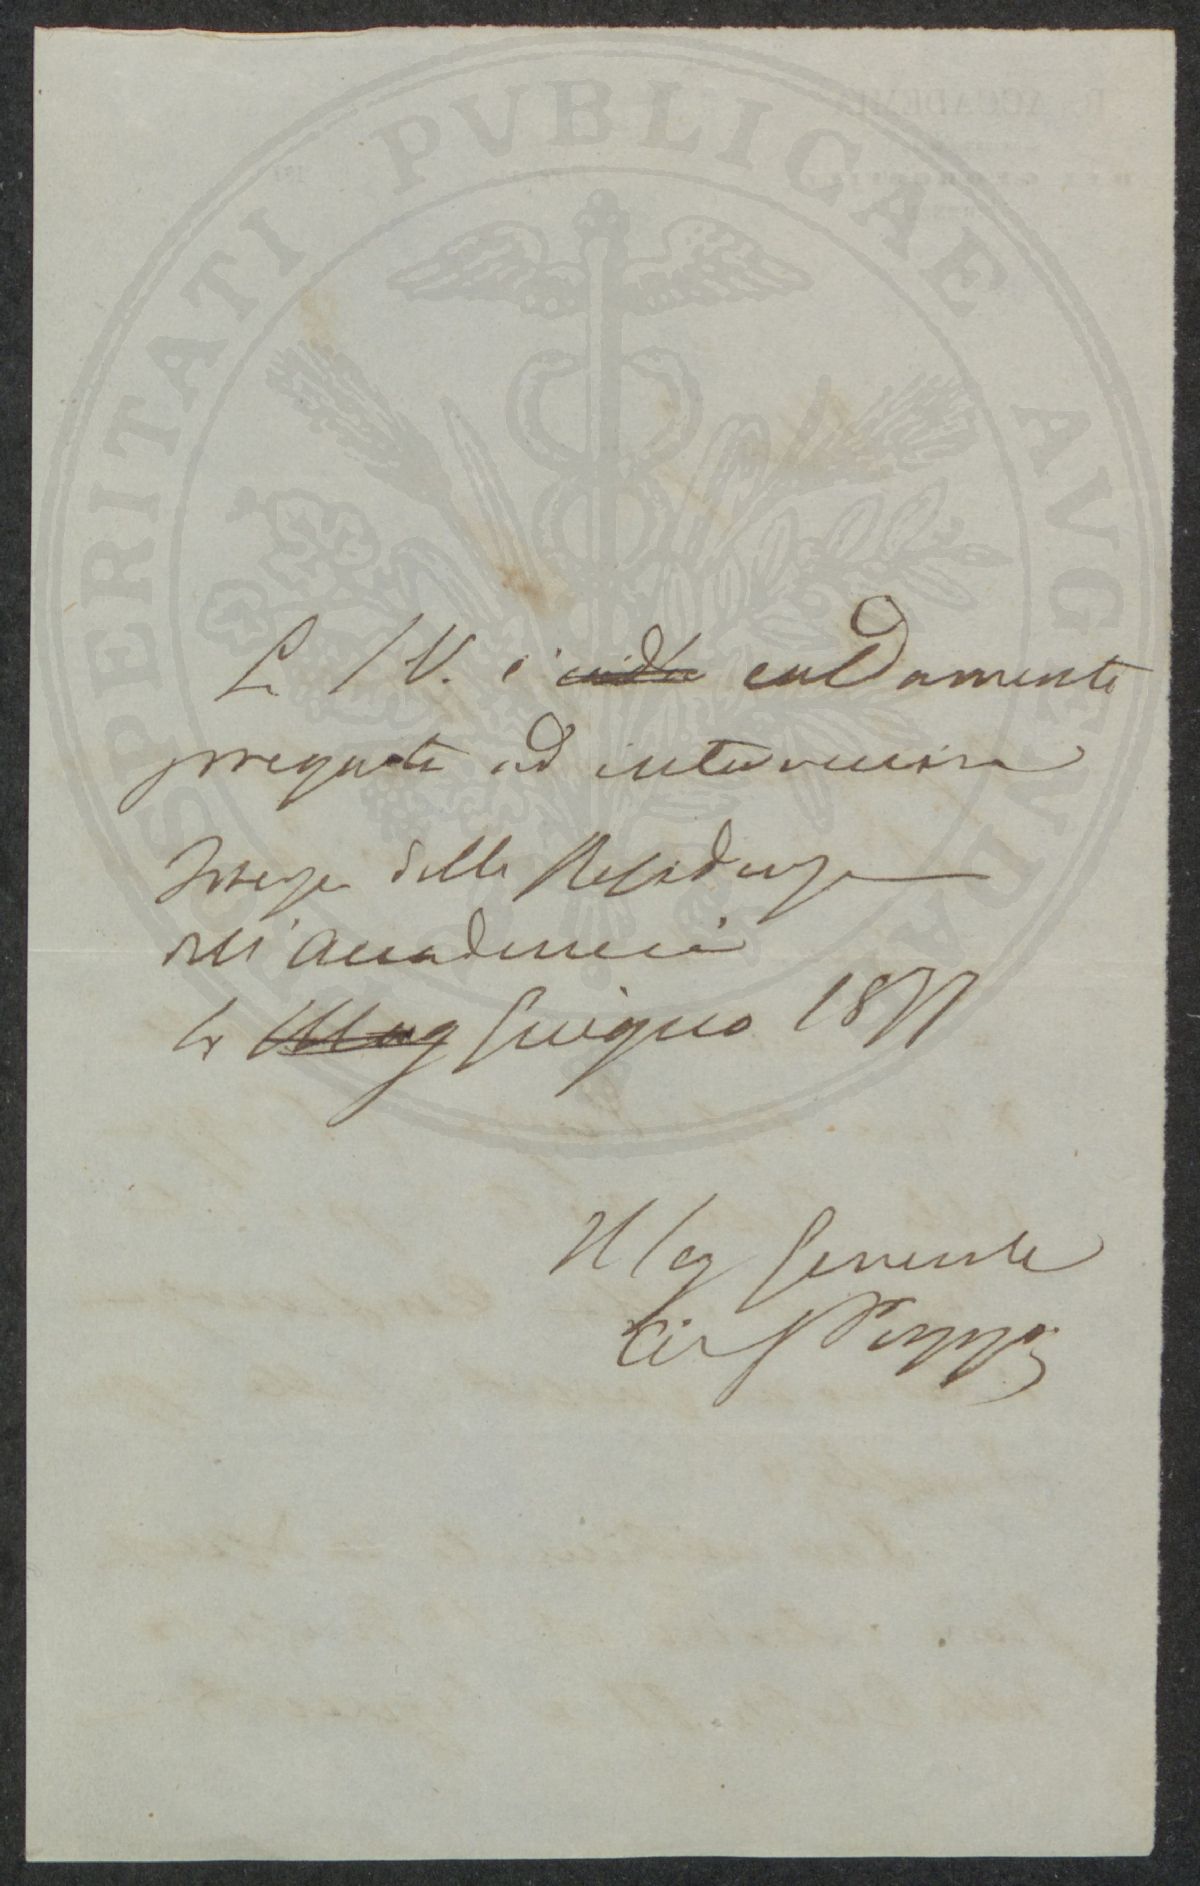 PROSPERITATI PVBLICAE AVGENDAE
L S V. è caldamente
pregata ad intervenire
Dalla Residenza
dell'Accademia
Li Mag Giugno 1877
Il Seg Generale